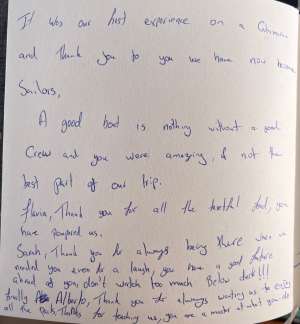 It was our first experience on a Catamaran
and Thank you to you we have now become
Sailors,
A good boat is nothing without a good
Crew and you were amazing, if not the
best part of our trip.
Flavia, Thank you for all the tastful food, you
have pampered us.
Sarah, Thank you for always being there when we
needed you even for a laugh, you have a good future
ahead of you, don't watch too much Below deck!!!
finally Alberto, Thank you for always wanting us to enjoy
all the spots, Thanks for teaching us, you are a master at what you do